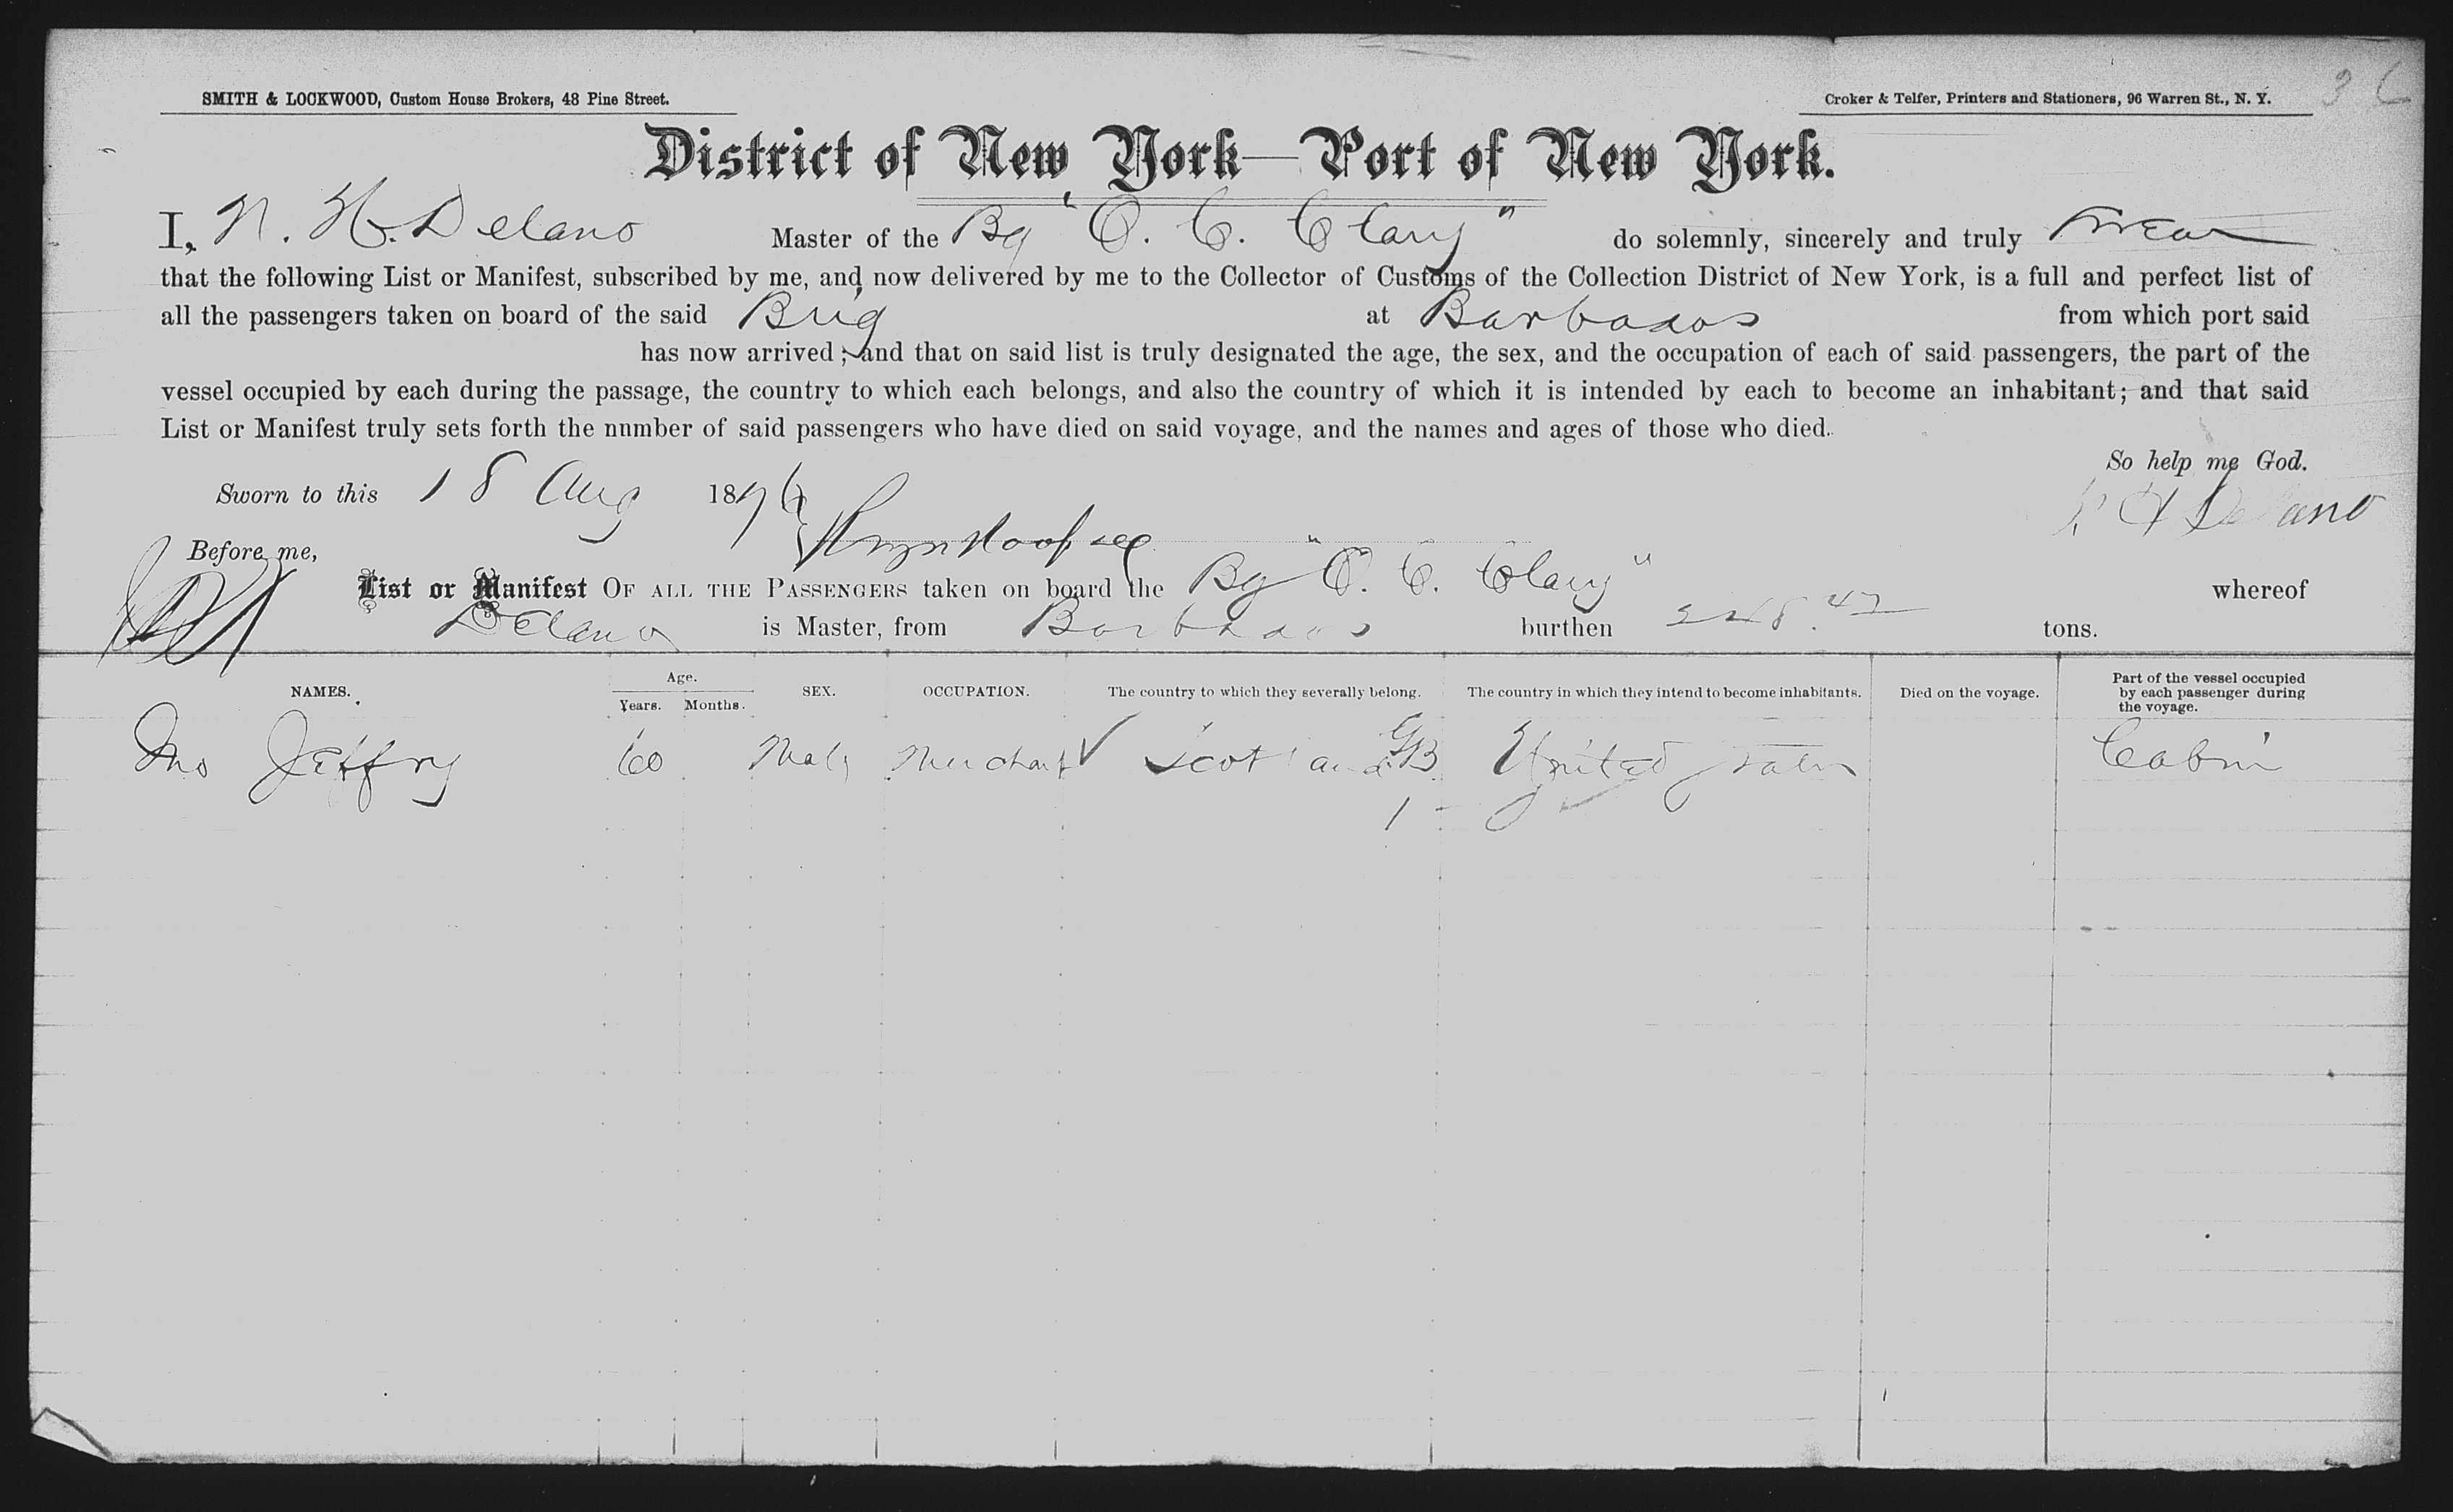 SMITH & LOCKWOOD, Custom House Brokers, 48 Pine Street.
Croker & Telfer, Printers and Stationers, 96 Warren St., N. Y.
District of New York—Port of New York.
I, N. H. Delano Master of the Bg "O. C. Clary" do solemnly, sincerely and truly swear
that the following List or Manifest, subscribed by me, and now delivered by me to the Collector of Customs of the Collection District of New York, is a full and perfect list of
all the passengers taken on board of the said Brig at Barbados from which port said
has now arrived; and that on said list is truly designated the age, the sex, and the occupation of each of said passengers, the part of the
vessel occupied by each during the passage, the country to which each belongs, and also the country of which it is intended by each to become an inhabitant; and that said
List or Manifest truly sets forth the nnmber of said passengers who have died on said voyage, and the names and ages of those who died.
So help me God.
Sworn to this 18 Aug 1876
Delano
Before me,
List or Manifest OF ALL THE PASSENGERS taken on board the Bg "O. C. Clary" whereof
Delano is Master, from Barbados burthen tons.
NAMES. Age. Years. Months. SEX. OCCUPATION. The country to which they severally belong. The country in which they intend to become inhabitants. Died on the voyage. Part of the vessel occupied by each passenger during the voyage.
Jno Jeffry 60 Male Merchant Scotland GB United States Cabin
1